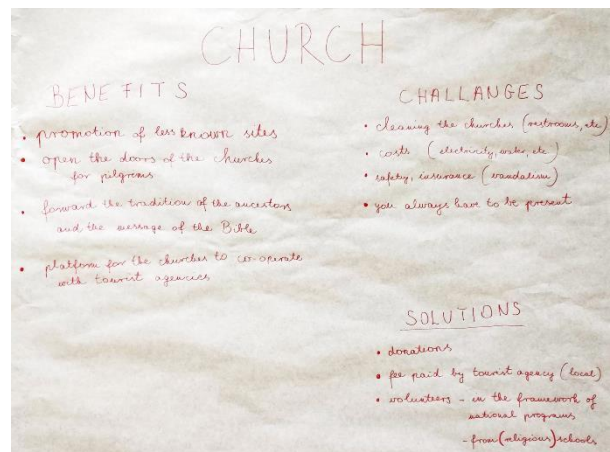 CHURCH
BENEFITS
• promotion of less known sites
• open the doors of the churches
for pilgrims
• forward the tradition of the ancestors
and the message of the Bible
• platform for the churches to co-operate
with tourist agencies
CHALLANGES
• cleaning the churches (restrooms, etc)
• costs (electricity, water, etc)
• safety, insurance (vandalism)
• you always have to be present
SOLUTIONS
• donations
• fee paid by tourist agency (local)
• volunteers - in the framework of
national programs
- from (religious) schools